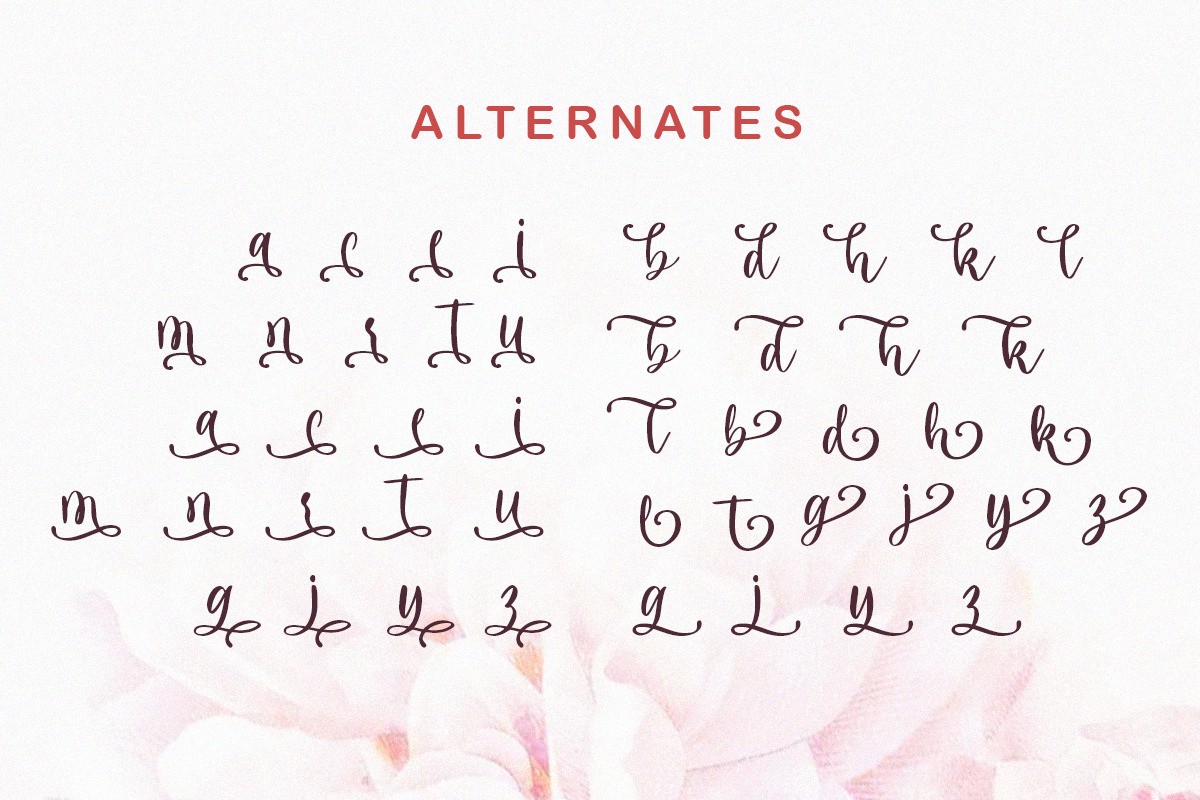 ALTERNATES
a c e i b d h k l
m n r t u b d h k
a c e i l b d h k
m n r t u l t g j y z
g j y z g j y z